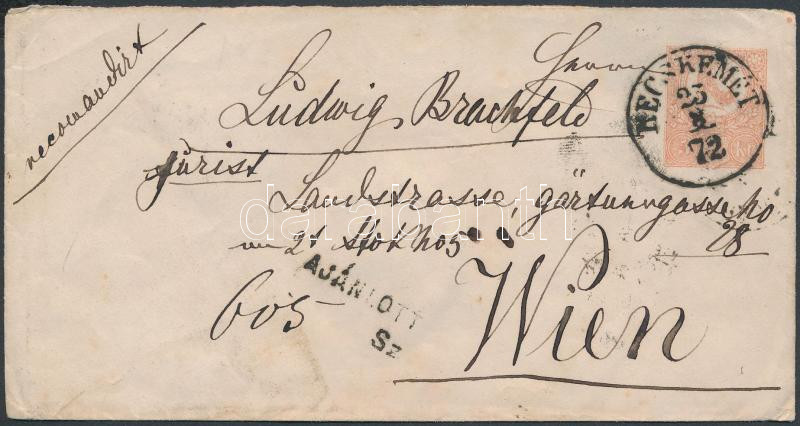 recomandirt
Herrn
Ludwig Brachfeld
Jurist
Landstrasse, gärtnergasse No
28
im 2t Stok No 5
Wien
605
AJÁNLOTT
Sz
KECSKEMÉT
25
72
darabanth